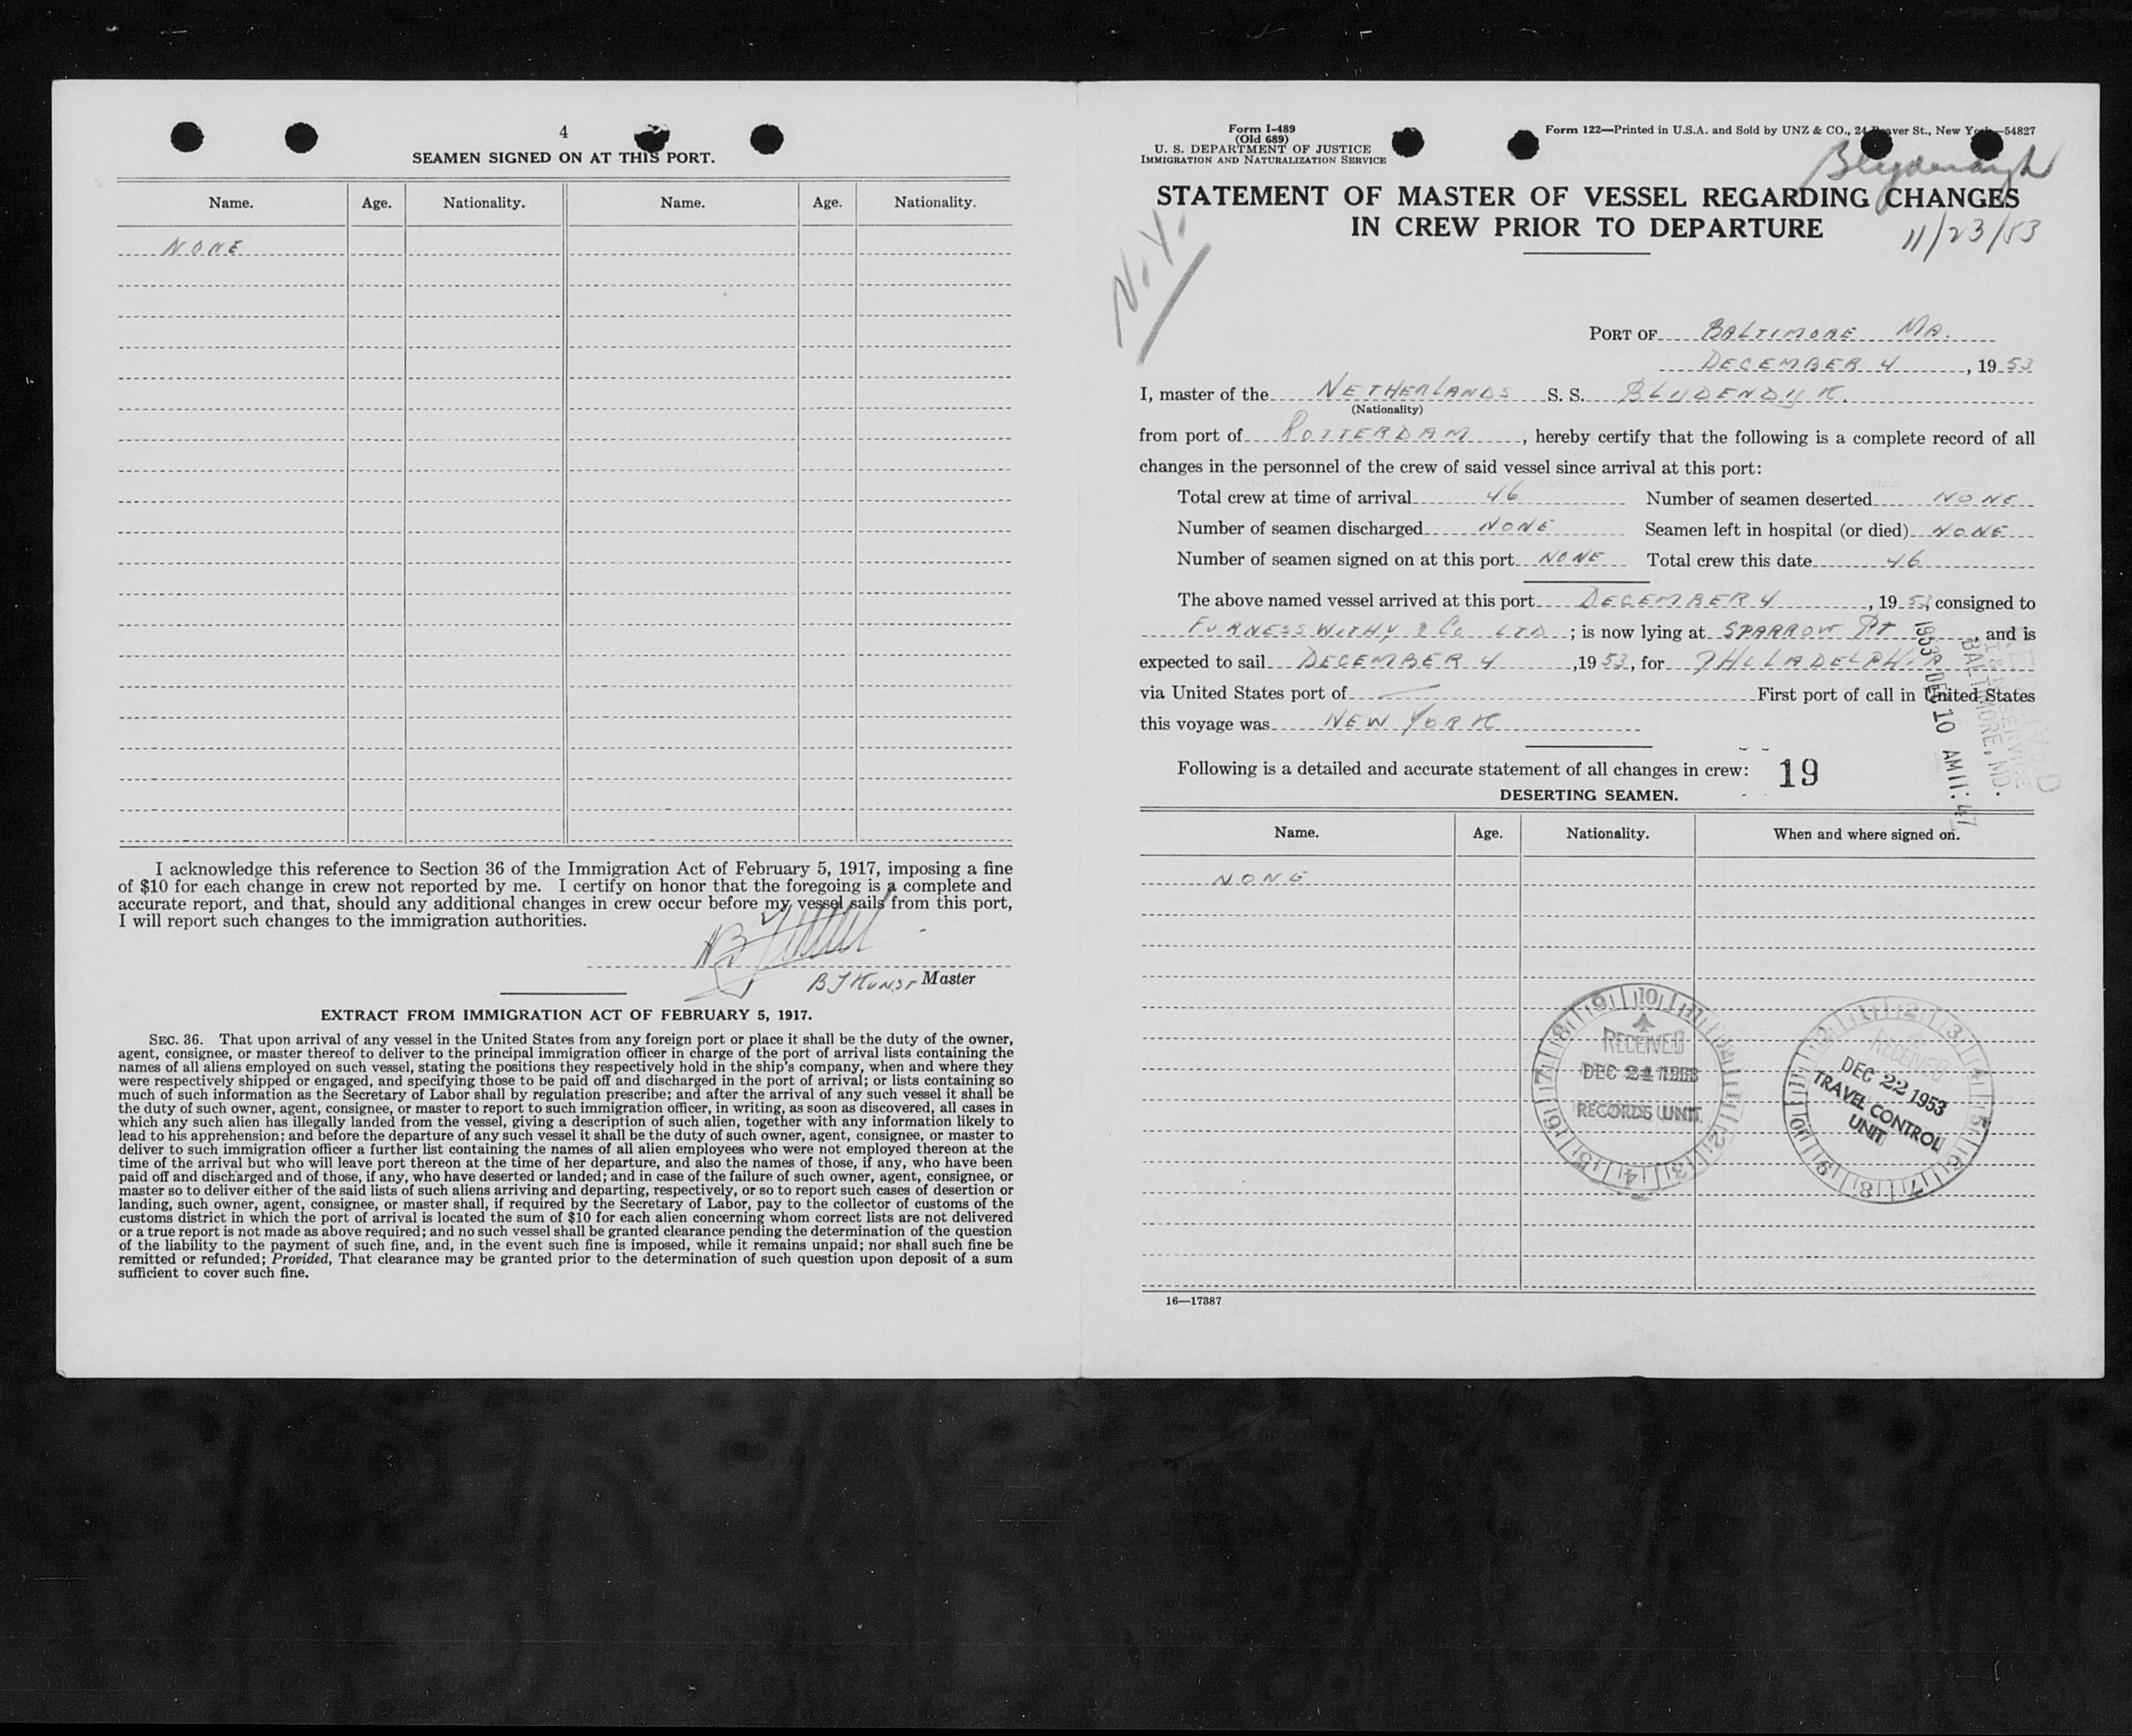 4
SEAMEN SIGNED ON AT THIS PORT.
Name. Age. Nationality. Name. Age. Nationality.
NONE
I acknowledge this reference to Section 36 of the Immigration Act of February 5, 1917, imposing a fine
of $10 for each change in crew not reported by me. I certify on honor that the foregoing is a complete and
accurate report, and that, should any additional changes in crew occur before my vessel sails from this port,
I will report such changes to the immigration authorities.
B J KUNST Master
EXTRACT FROM IMMIGRATION ACT OF FEBRUARY 5, 1917.
SEC. 36. That upon arrival of any vessel in the United States from any foreign port or place it shall be the duty of the owner,
agent, consignee, or master thereof to deliver to the principal immigration officer in charge of the port of arrival lists containing the
names of all aliens employed on such vessel, stating the positions they respectively hold in the ship's company, when and where they
were respectively shipped or engaged, and specifying those to be paid off and discharged in the port of arrival; or lists containing so
much of such information as the Secretary of Labor shall by regulation prescribe; and after the arrival of any such vessel it shall be
the duty of such owner, agent, consignee, or master to report to such immigration officer, in writing, as soon as discovered, all cases in
which any such alien has illegally landed from the vessel, giving a description of such alien, together with any information likely to
lead to his apprehension; and before the departure of any such vessel it shall be the duty of such owner, agent, consignee, or master to
deliver to such immigration officer a further list containing the names of all alien employees who were not employed thereon at the
time of the arrival but who will leave port thereon at the time of her departure, and also the names of those, if any, who have been
paid off and discharged and of those, if any, who have deserted or landed; and in case of the failure of such owner, agent, consignee, or
master so to deliver either of the said lists of such aliens arriving and departing, respectively, or so to report such cases of desertion or
landing, such owner, agent, consignee, or master shall, if required by the Secretary of Labor, pay to the collector of customs of the
customs district in which the port of arrival is located the sum of $10 for each alien concerning whom correct lists are not delivered
or a true report is not made as above required; and no such vessel shall be granted clearance pending the determination of the question
of the liability to the payment of such fine, and, in the event such fine is imposed, while it remains unpaid; nor shall such fine be
remitted or refunded; Provided, That clearance may be granted prior to the determination of such question upon deposit of a sum
sufficient to cover such fine.
Form I-489
(Old 689)
U. S. DEPARTMENT OF JUSTICE
IMMIGRATION AND NATURALIZATION SERVICE
Form 122—Printed in U.S.A. and Sold by UNZ & CO., 24 Beaver St., New York—54827
STATEMENT OF MASTER OF VESSEL REGARDING CHANGES
IN CREW PRIOR TO DEPARTURE
11/23/53
N.Y.
PORT OF BALTIMORE MA.
DECEMBER 4, 1953
I, master of the NETHERLANDS S. S. BLYDENDYK.
(Nationality)
from port of ROTTERDAM, hereby certify that the following is a complete record of all
changes in the personnel of the crew of said vessel since arrival at this port:
Total crew at time of arrival 46 Number of seamen deserted NONE
Number of seamen discharged NONE Seamen left in hospital (or died) NONE
Number of seamen signed on at this port NONE Total crew this date 46
The above named vessel arrived at this port DECEMBER 4, 1953, consigned to
FURNESS WITHY & Co LTD; is now lying at SPARROW PT, and is
expected to sail DECEMBER 4, 1953, for PHILADELPHIA
via United States port of — First port of call in United States
this voyage was NEW YORK
RECEIVED
BALTIMORE, MD.
1953 DEC 10 AM 11:47
Following is a detailed and accurate statement of all changes in crew: 19
DESERTING SEAMEN.
Name. Age. Nationality. When and where signed on.
NONE
RECEIVED
DEC 24 1953
RECORDS UNIT
RECEIVED
DEC 22 1953
TRAVEL CONTROL
UNIT
16—17387